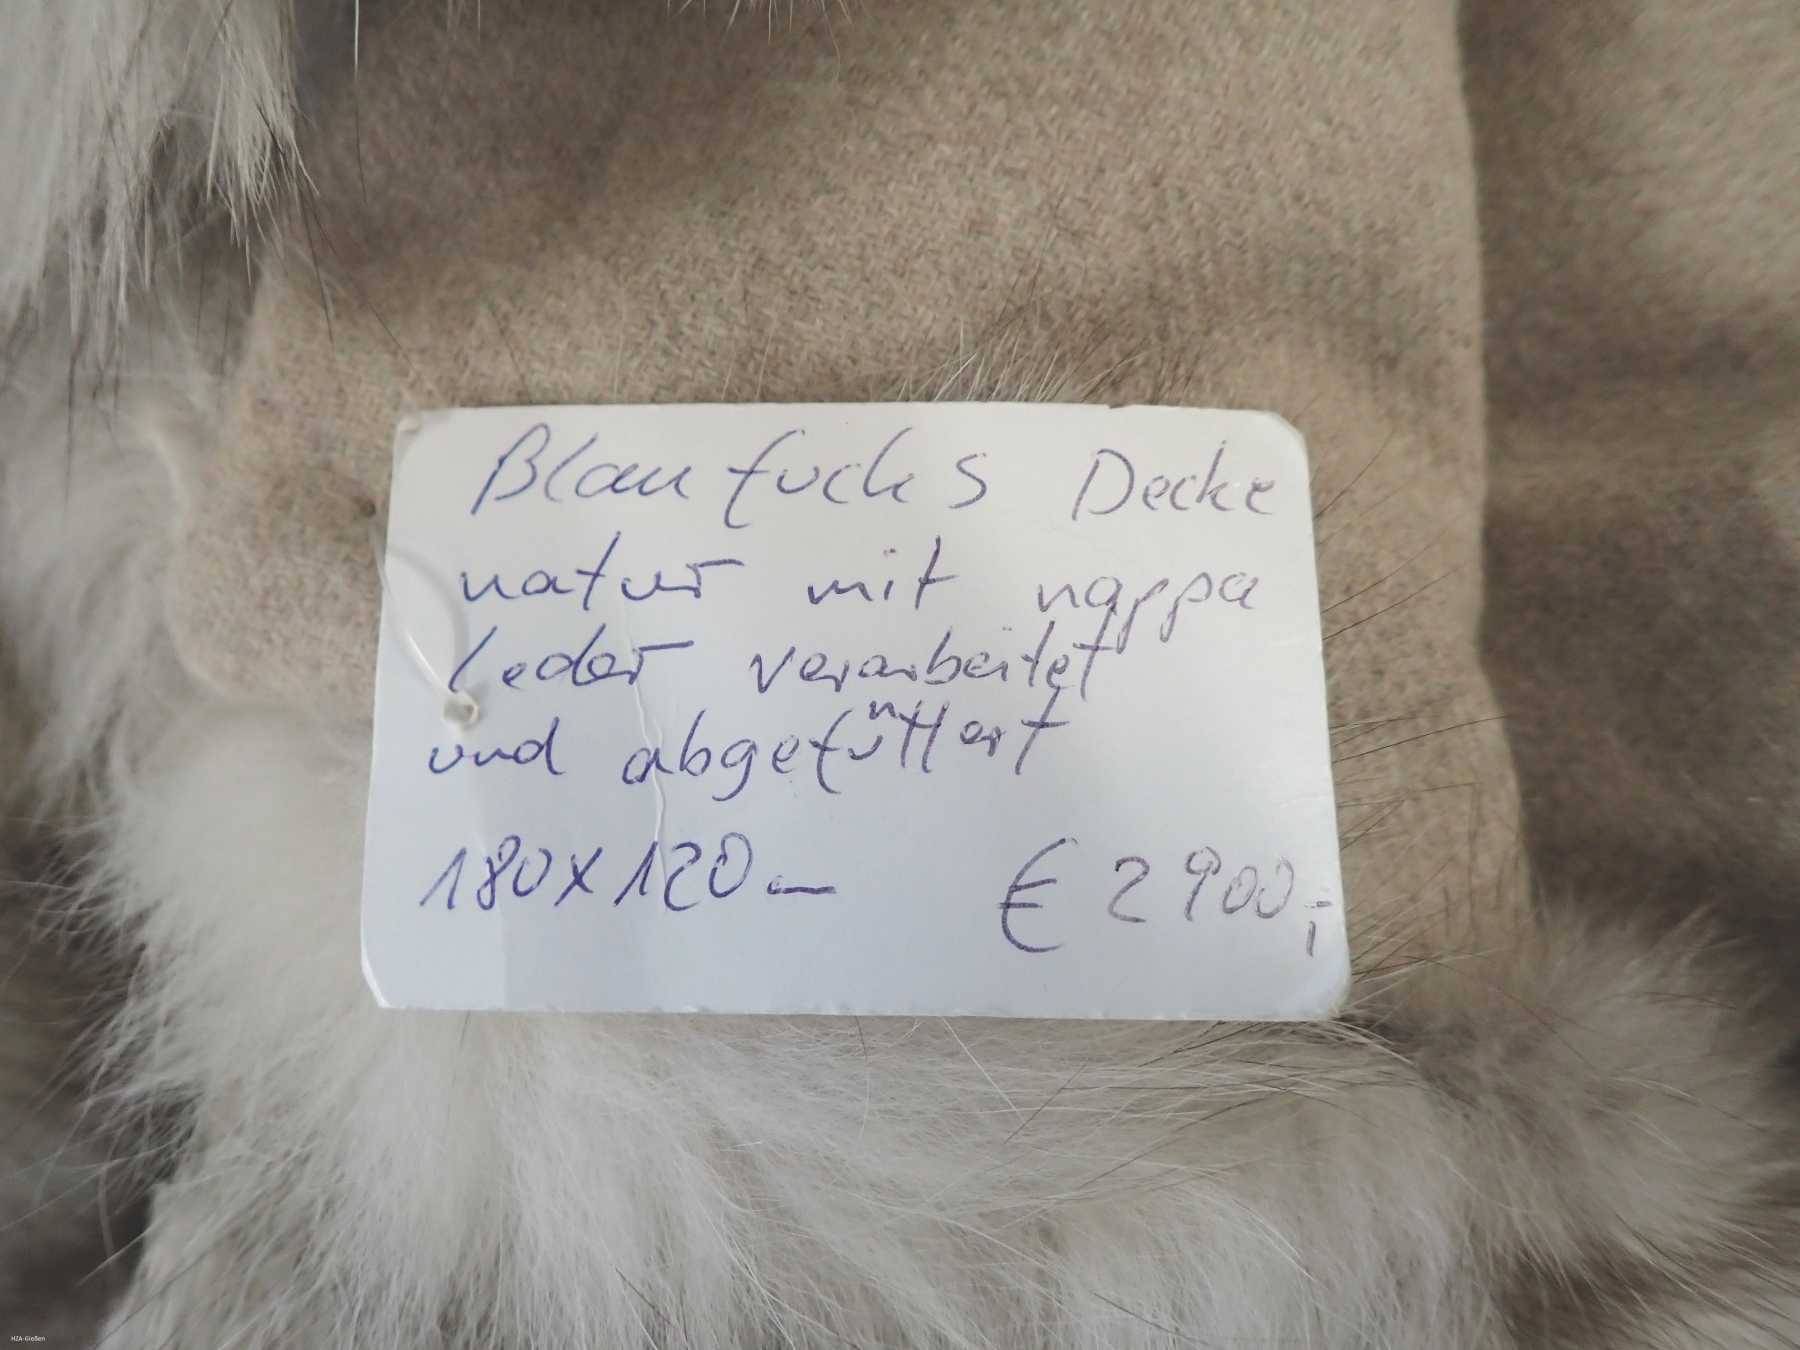 Blaufuchs Decke
natur mit nappa
leder verarbeitet
und abgefüttert
180x120— € 2900,-
HZA-Gießen